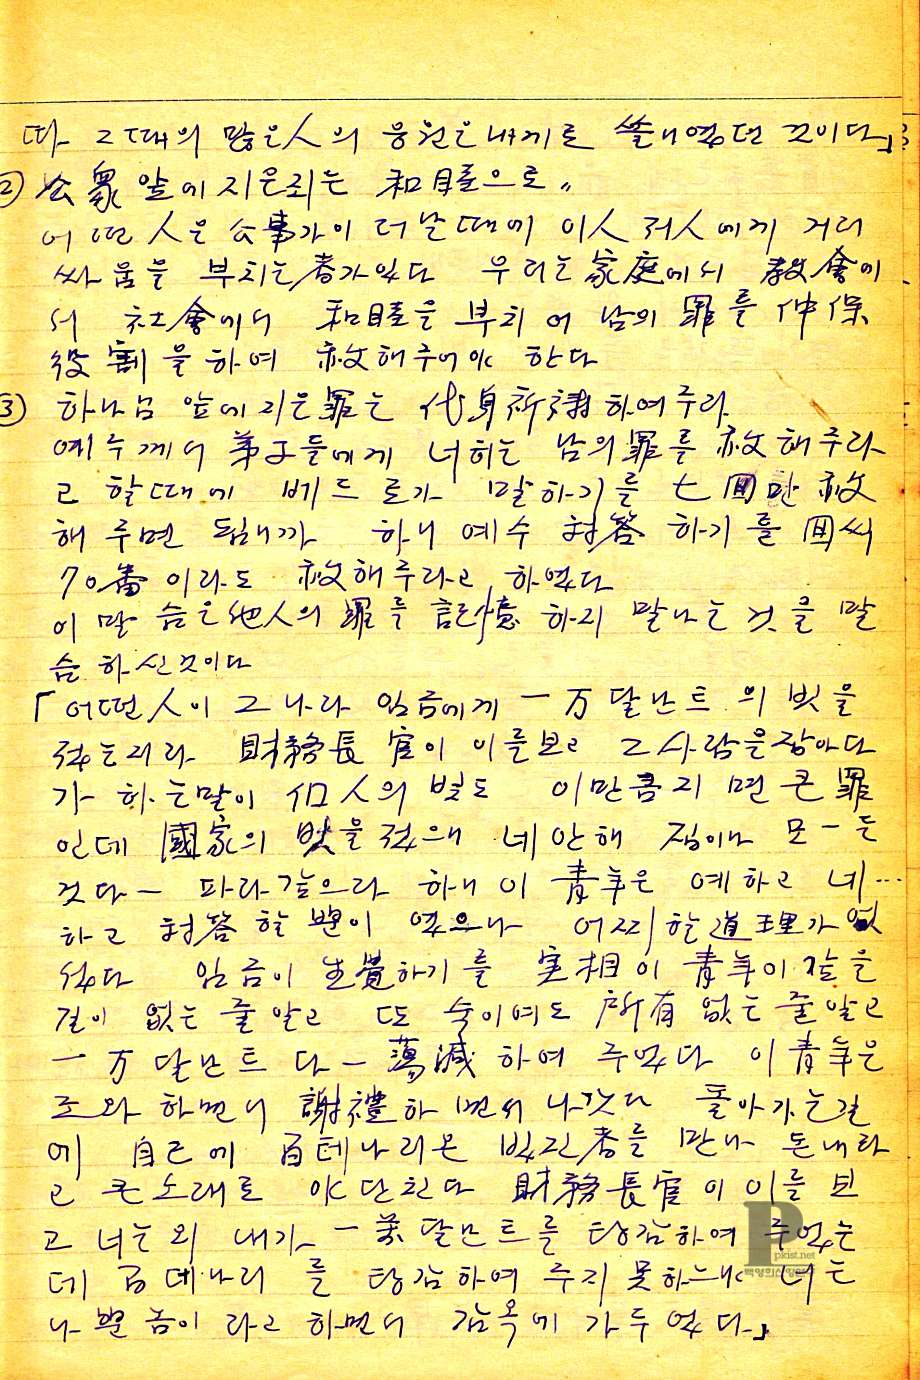 따 그때의 많은人의 응원은 내게로 쏠니였던 것이다」
② 公衆앞에 지은죄는 和睦으로〃
어떤人은 公事가 이러날때에 이人 저人에게 거러
싸움을 부치는者가있다 우리는 家庭에서 敎會에
서 社會에서 和睦을 부치어 남의 罪를 仲保
役割을 하여 赦해주어야 한다
③ 하나님 앞에 지은罪는 代身祈禱하여주라
예수께서 弟子들에게 너히는 남의罪를 赦해주라
고 할때에 베드로가 말하기를 七回만 赦
해주면 됨내까 하니 예수 対答 하기를 回씩
70番이라도 赦해주라고 하였다
이 말슴은 他人의 罪를 記憶하지 말나는 것을 말
슴하신것이다
「어떤人이 그나라 임금에게 一万달난트의 빗을
젔는지라 財務長官이 이를보고 그사람을잡아다
가 하는말이 個人의 빗도 이만큼지면 큰罪
인데 國家의 빗을젔으매 네안해 집이나 모ー든
것다ー 파라갚으라 하니 이 青年은 예하고 네…
하고 対答할뿐이 였으나 어찌할道理가 없
섰다 임금이 生覺하기를 実相이 青年이 갚을
길이 없는줄알고 또 속이여도 所有없는줄알고
一万달난트 다ー 蕩減하여 주었다 이青年은
조와하면서 謝禮하면서 나갓다 돌아가는길
에 自己에 百데나리온 빗진者를 만나 돈내라
고 큰소래로 야단친다 財務長官이 이를보
고 너는 왜 내가 一萬달난트를 탕감하여 주었는
데 百데나리를 탕감하여 주지못하느냐 너는
나뿐놈이라고 하면서 감옥에 가두었다.」
pkist.net
백영희신앙연구